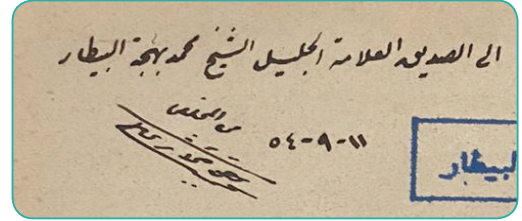 الى الصديق العلامة الجليل الشيخ محمد بهجة البيطار
من المخلص
١١-٩-٥٤
لبيطار